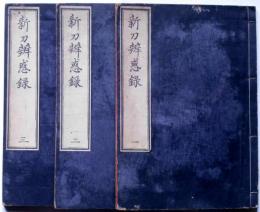 新刀辨惑録 一
新刀辨惑録 二
新刀辨惑録 三